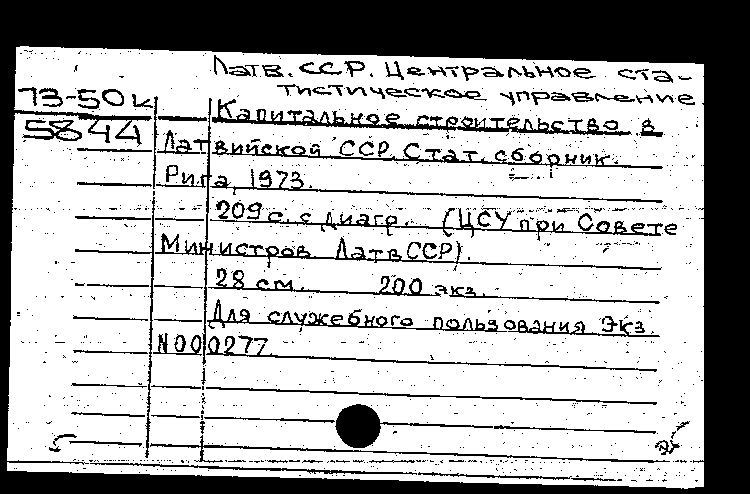 Латв. ССР. Центральное ста-
тистическое управление
73-50к
5844
Капитальное строительство в
Латвийской ССР. Стат. сборник.
Рига, 1973.
209 с. с диагр. (ЦСУ при Совете
Министров ЛатвССР).
28 см. 200 экз.
Для служебного пользования Экз.
N000277